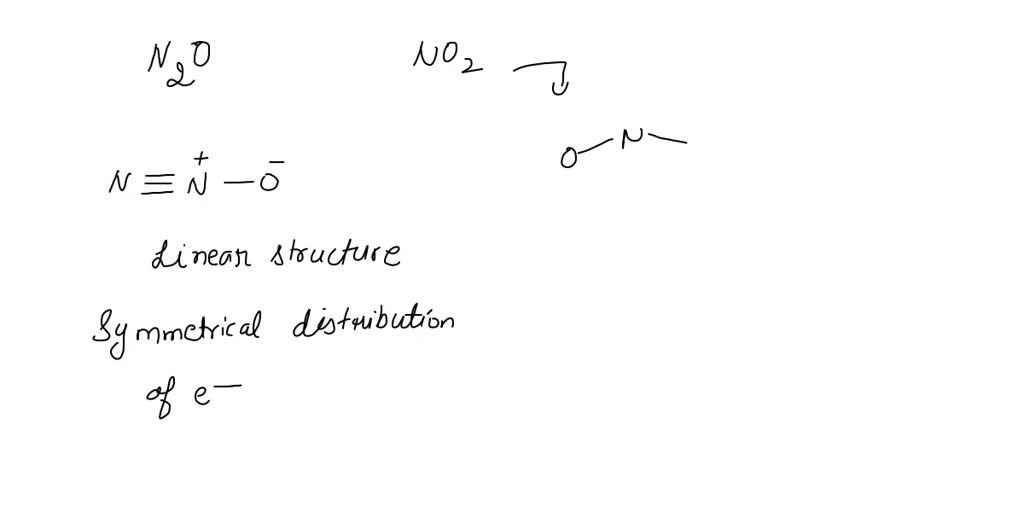 N₂O NO₂
O–N–
N≡N⁺–O⁻
Linear structure
Symmetrical distribution
of e⁻